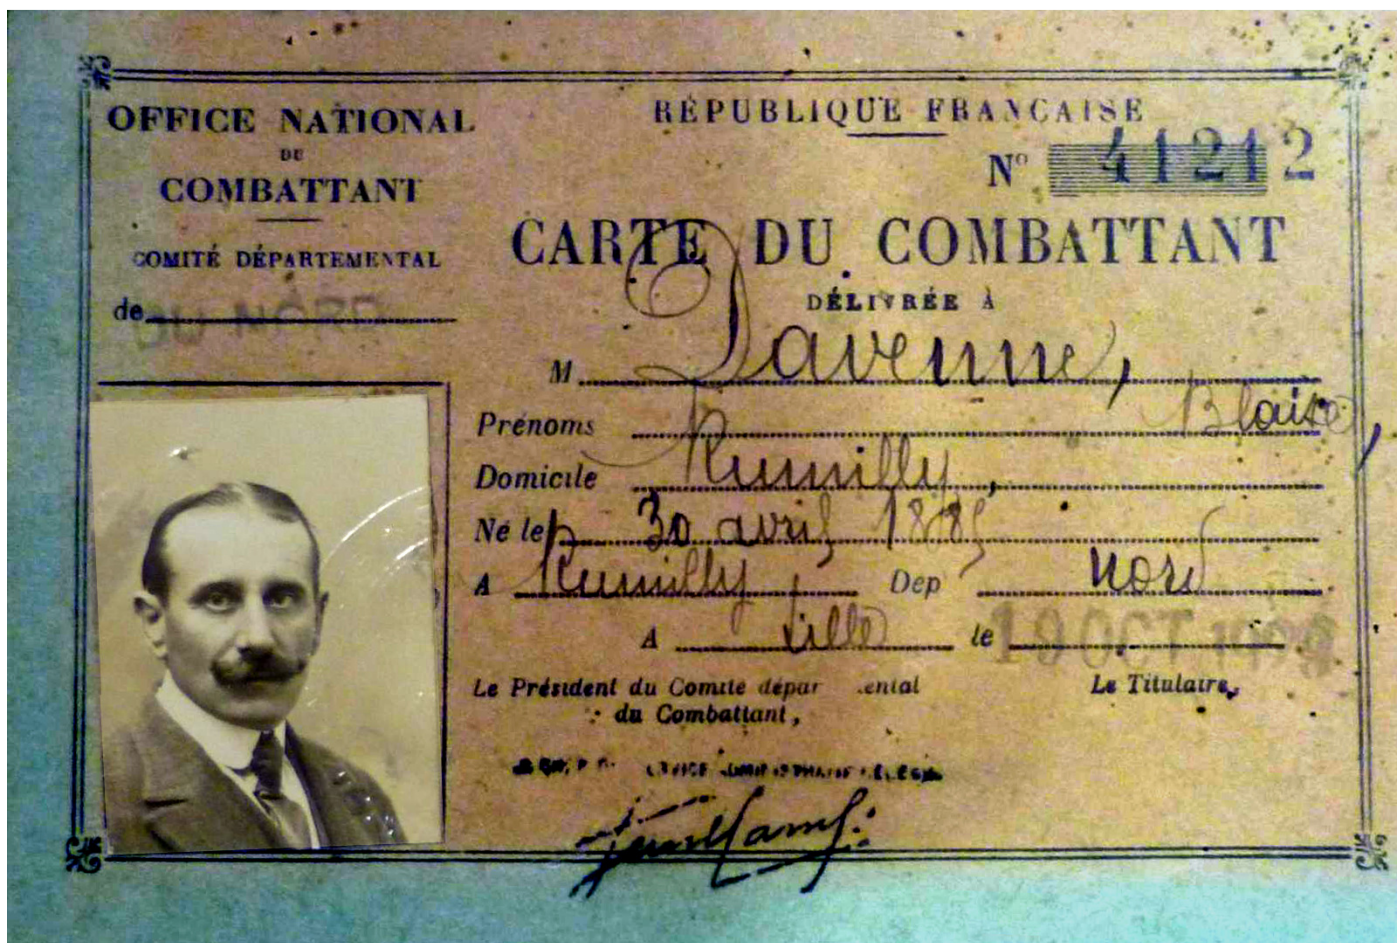 OFFICE NATIONAL
DU
COMBATTANT
COMITÉ DÉPARTEMENTAL
de DU NORD
RÉPUBLIQUE FRANÇAISE
Nº 41212
CARTE DU COMBATTANT
DÉLIVRÉE À
M Davenne,
Prénoms Blaise,
Domicile Rumilly,
Né le 30 avril 1885
A Rumilly Dep Nord
A Lille le 19 OCT
Le Président du Comité départemental
du Combattant,
Le Titulaire,